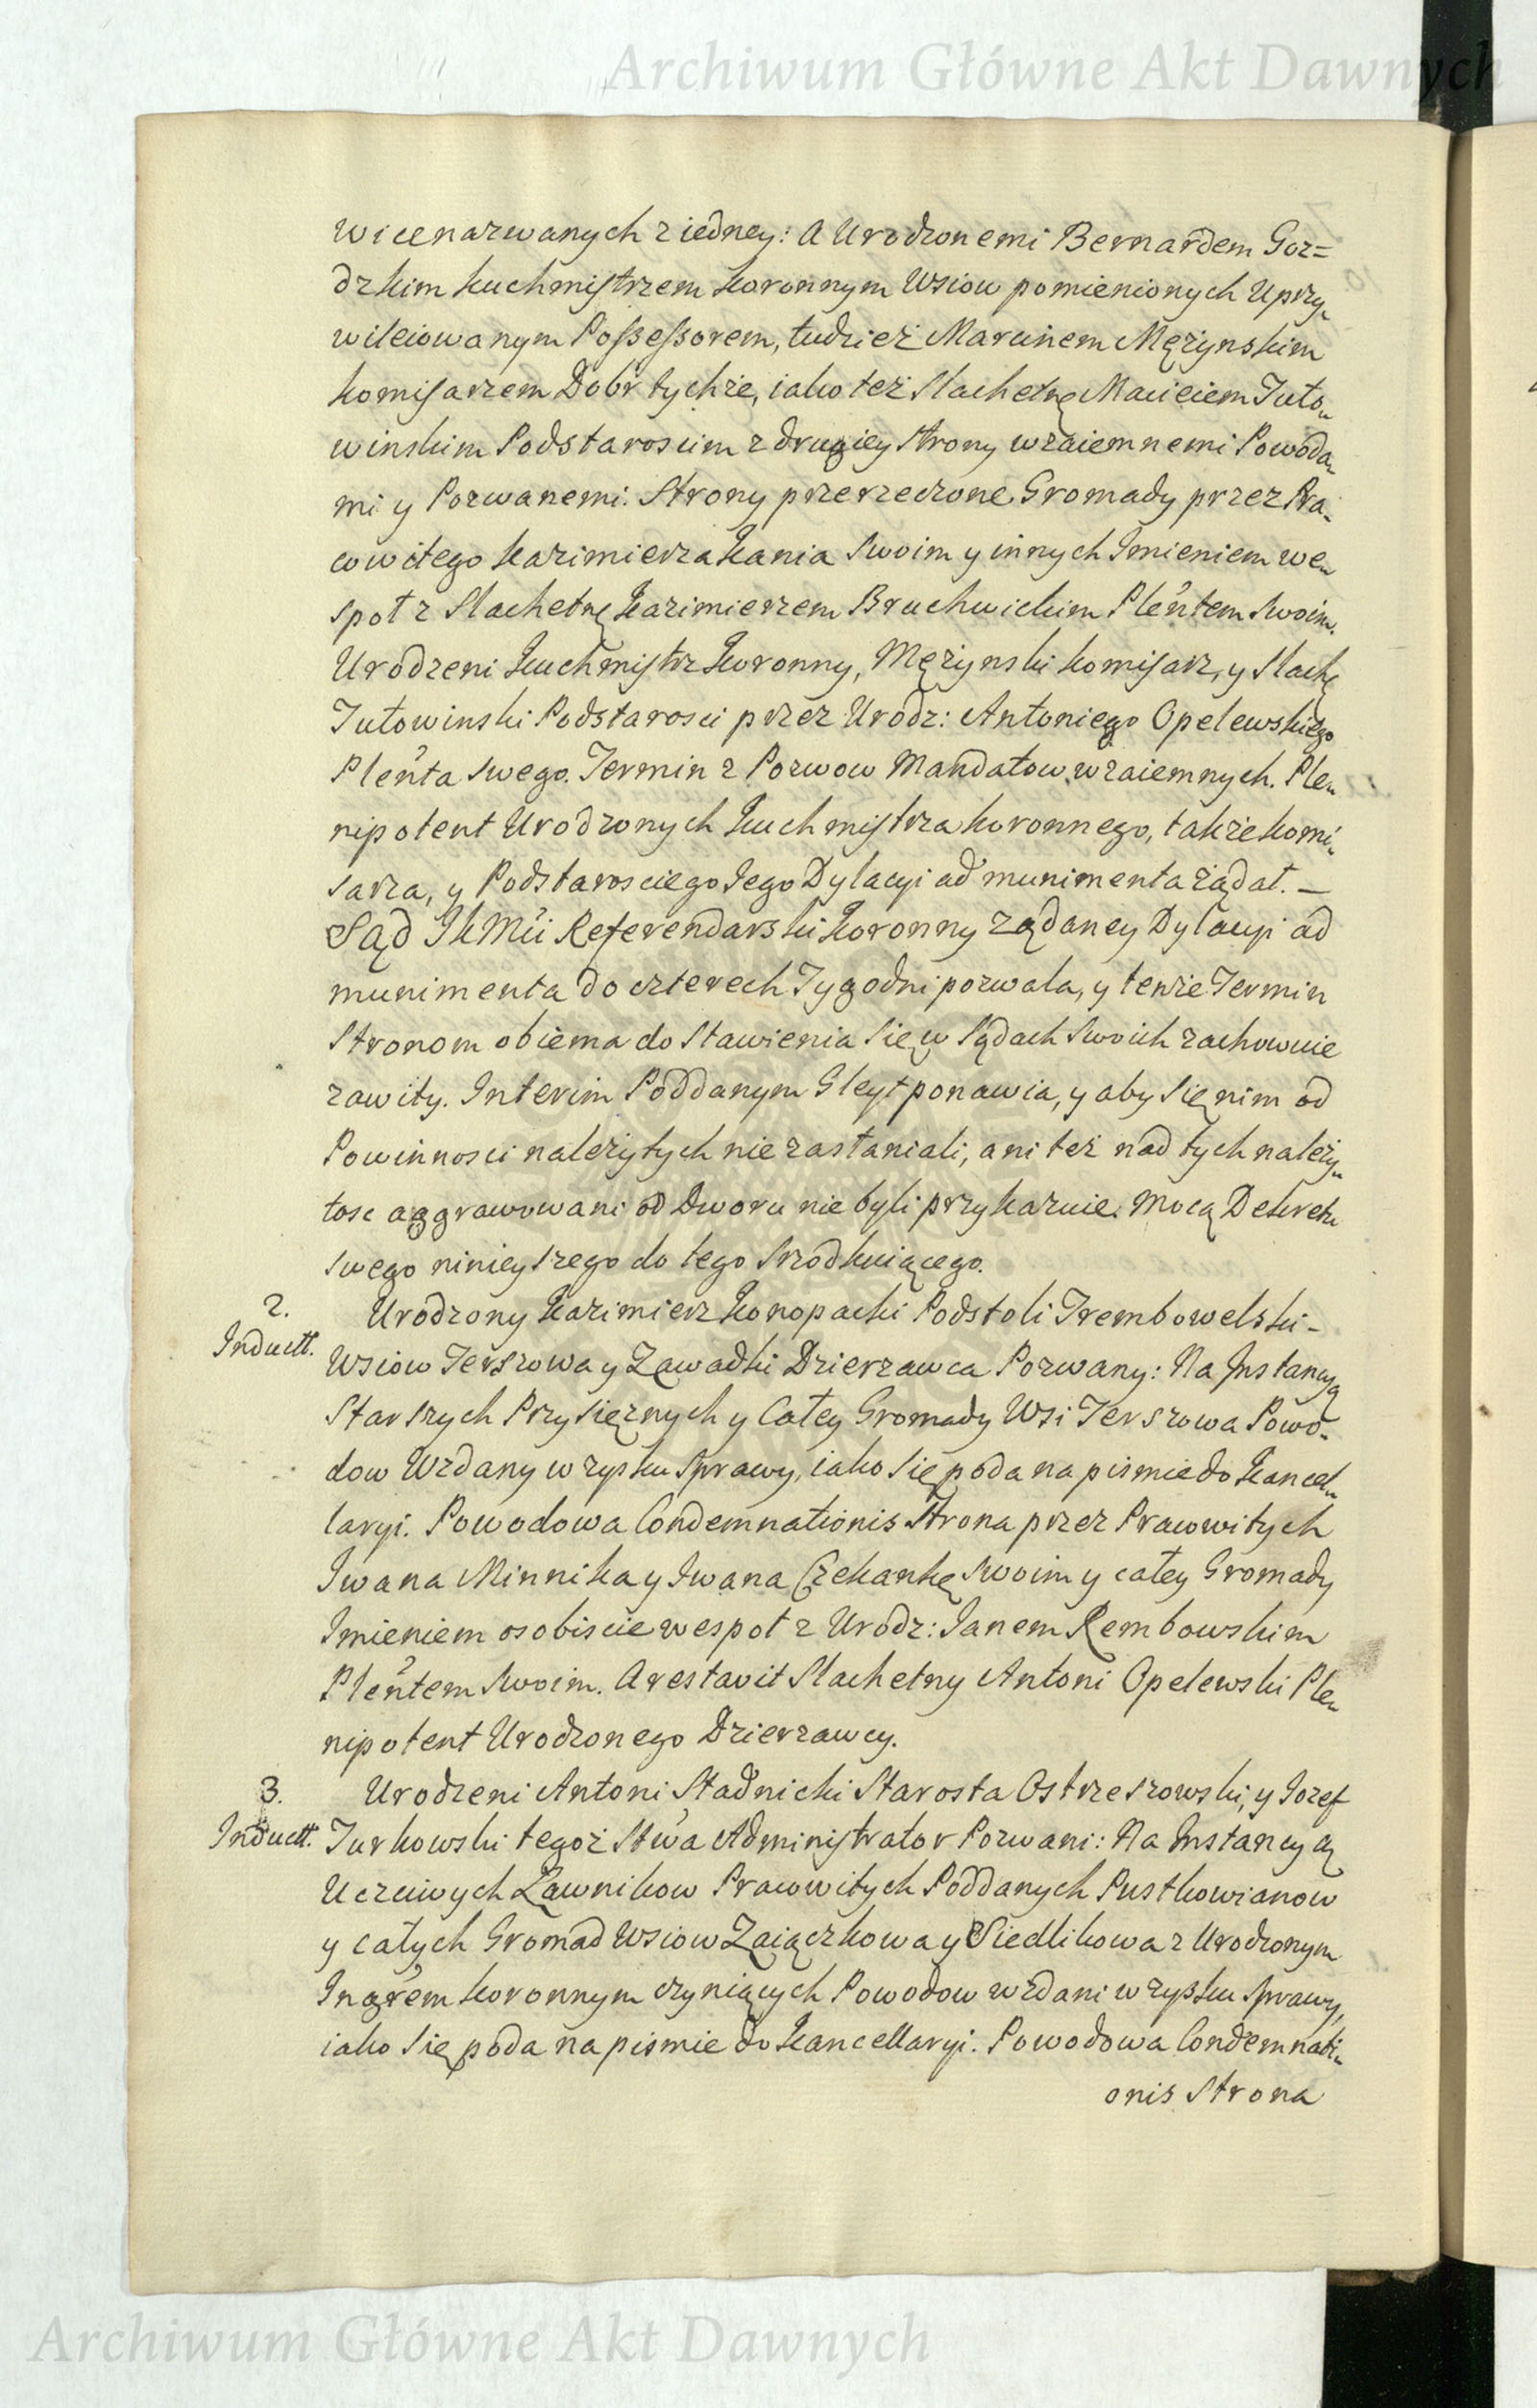 Archiwum Główne Akt Dawnych
wicenazwanych z iedney: A Urodzonemi Bernardem Goz=
dzkim Kuchmistrzem Koronnym Wsiow pomienionych Uprzy„
wileiowanym Possessorem, tudzież Marcinem Mężynskim
Komisarzem Dobr tychże, iako też Slachetnę Maciciem Tuto„
winskim Podstaroscim z drugiey strony wzaiemnemi Powoda„
mi y Pozwanemi. Strony przerzeczone Gromady przez Pra„
cowitego Kazimierza Kania swoim y innych Imieniem we„
społ z Slachetnę Kazimierzem Bruchwickim Plentem swoim.
Urodzeni Kuchmistrz Koronny, Mężynski Komisarz, y Slachę
Tutowinski Podstarosci przez Urodz: Antoniego Opelewskiego
Plenta swego. Termin z Pozwow Mandatow wzaiemnych. Ple„
nipotent Urodzonych Kuchmistrza Koronnego, takze Komi„
sarza, y Podstarosciego Jego Dylacyi ad munimenta żądał. —
Sąd JKMci Referendarski Koronny ządaney Dylacyi ad
munimenta do czterech Tygodni pozwala, y tenże Termin
Stronom obiema do stawienia się w sądach swoich zachowuie
zawity. Interim Poddanym Gleyt ponawia, y aby się nim od
Powinnosci należytych nie zastaniali, ani też nad tych należy„
tosc aggrawowani od Dworu nie byli przykazuie. Mocą Dekretu
swego ninieyszego do tego srzodkuiącego.
2.
Inductt.
Urodzony Kazimierz Konopacki Podstoli Trembowelski –
Wsiow Terszowa y Zawadki Dzierzawca Pozwany: Na Instancyą
Starszych Przysięznych y Całey Gromady Wsi Terszowa Powo„
dow Wzdany w zysku sprawy, iako się poda na pismie do Kancel„
laryi. Powodowa Condemnationis Strona przez Pracowitych
Iwana Minnika y Iwana Czekankę swoim y całey Gromady
Imieniem osobiscie wespoł z Urodz: Janem Rembowskim
Plentem swoim. Arestavit Slachetny Antoni Opelewski Ple„
nipotent Urodzonego Dzierzawcy.
3.
Inductt.
Urodzeni Antoni Stadnicki Starosta Ostrzeszowski, y Jozef
Turkowski tegoż Stwa Administrator Pozwani: Na Instancyą
Uczciwych Ławnikow Pracowitych Poddanych Pustkowianow
y całych Gromad Wsiow Zaiączkowa y Siedlikowa z Urodzonym
Ingrem Koronnym czyniących Powodow wzdani w zysku sprawy,
iako się poda na pismie do Kancellaryi. Powodowa Condemnati„
onis Strona
Archiwum Główne Akt Dawnych